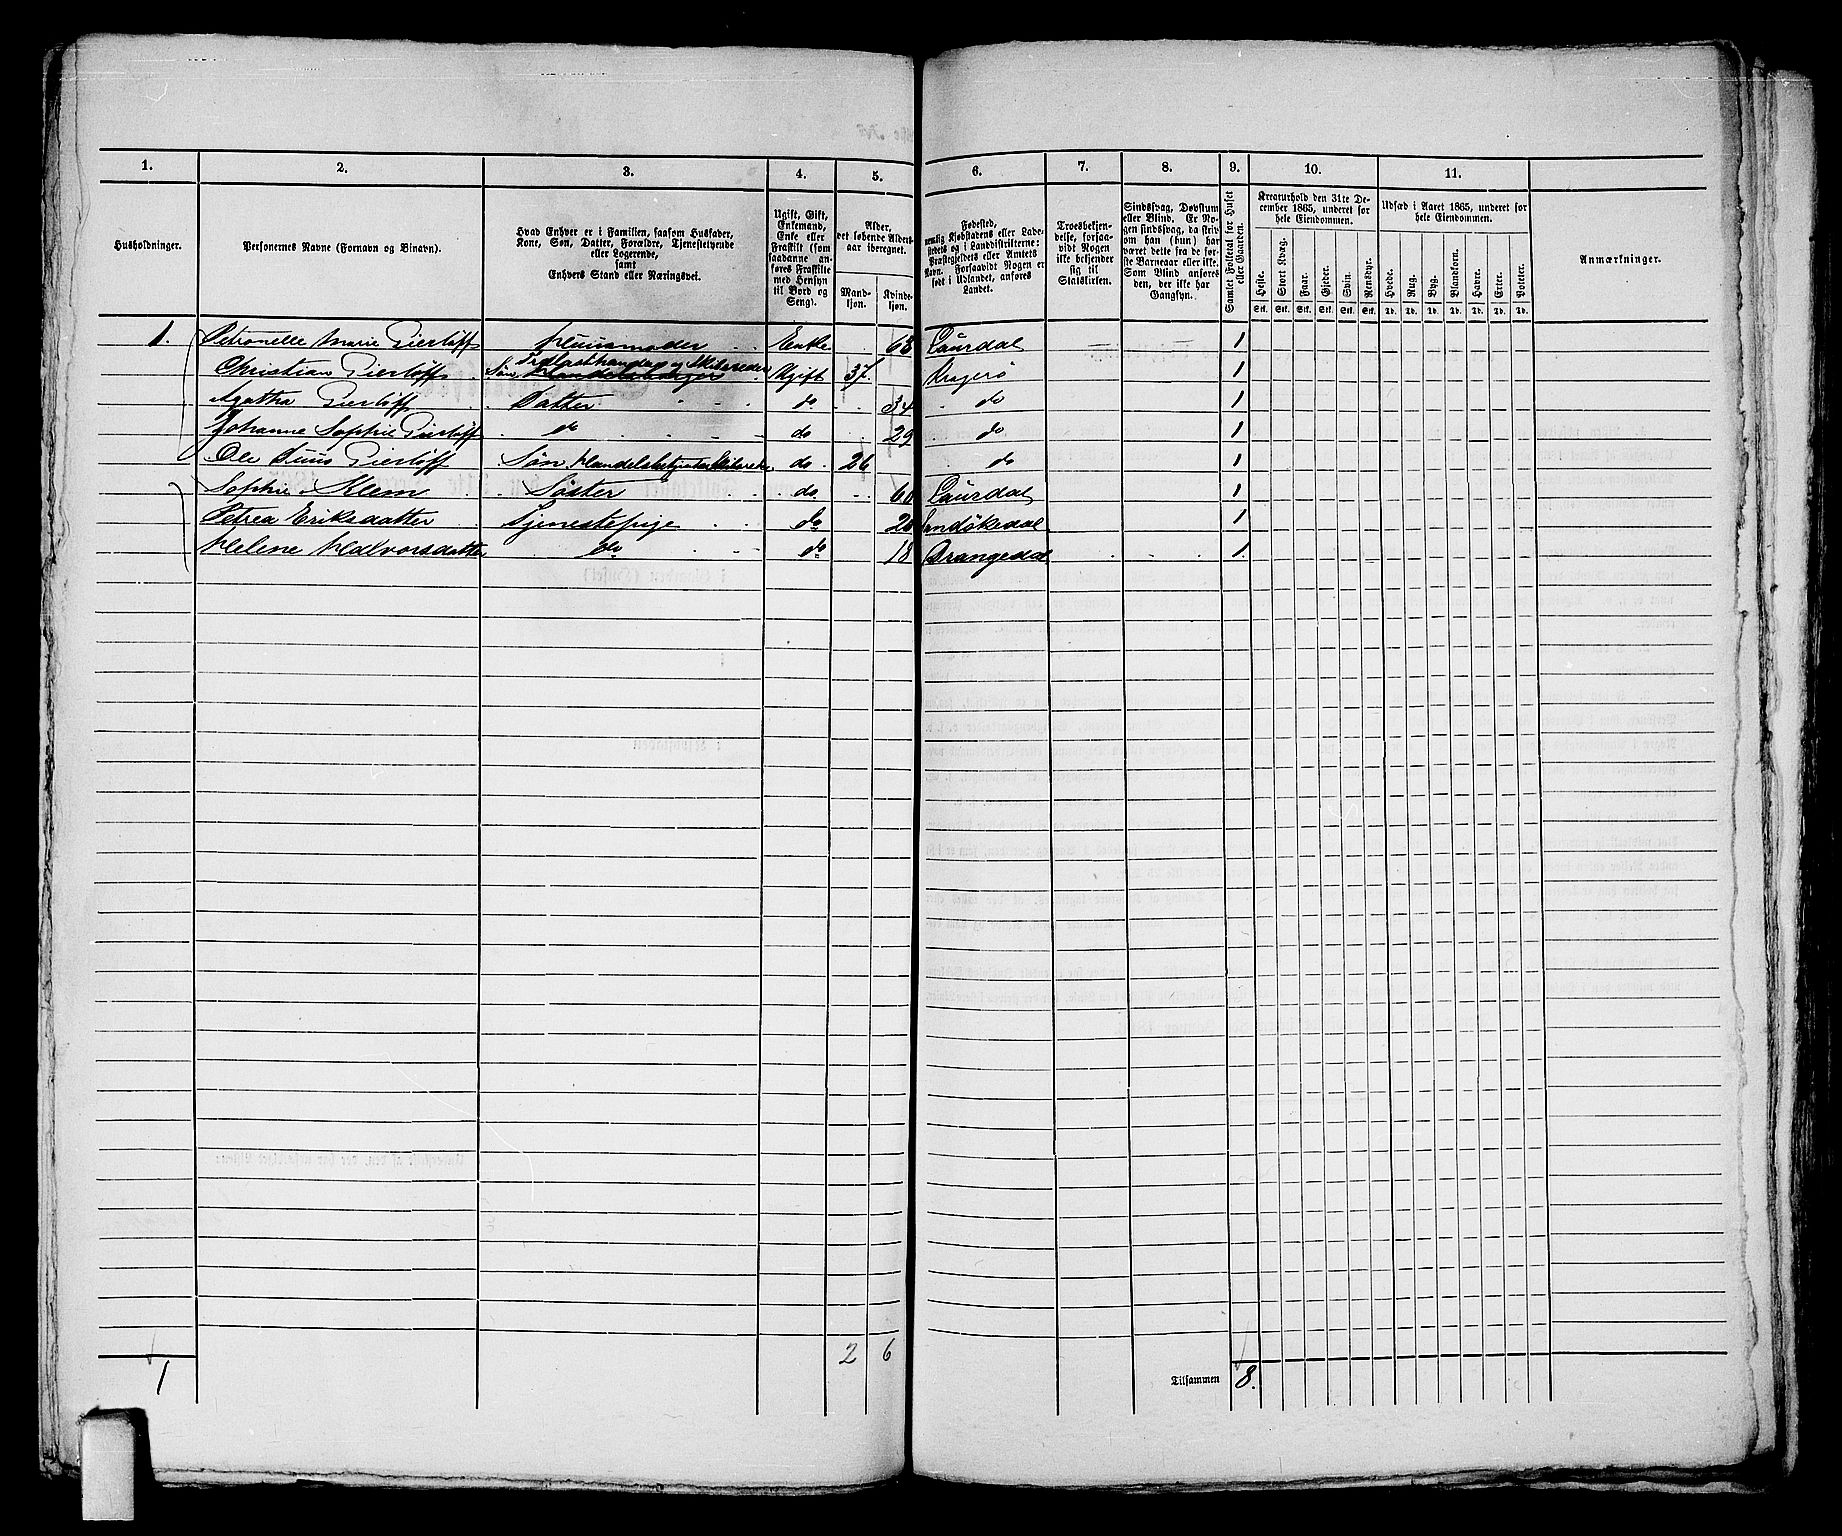 1. 2. 3. 4. 5. 6. 7. 8. 9. 10. 11.
Husholdninger.
Personernes Navne (Fornavn og Binavn).
Hvad Enhver er i Familien, saasom Husfader,
Kone, Søn, Datter, Forældre, Tjenestetyende
eller Logerende,
samt
Enhvers Stand eller Næringsvei.
Ugift, Gift,
Enkemand,
Enke eller
Fraskilt (som
saadanne an-
føres Fraskilte
med Hensyn
til Bord og
Seng).
Alder,
det løbende Alders-
aar iberegnet.
Mand-
kjøn.
Kvinde-
kjøn.
Fødested,
nemlig Kjøbstadens eller Lade-
stedets og i Landdistrikterne:
Præstegjeldets eller Amtets
Navn. Forsaavidt Nogen er
født i Udlandet, anføres
Landet.
Troesbekjen-
delse, forsaa-
vidt Nogen
ikke bekjender
sig til
Statskirken.
Sindssvag, Døvstum
eller Blind. Er No-
gen sindssvag, da skriv
om han (hun) har
været dette fra de før-
ste Barneaar eller ikke.
Som Blind anføres
den, der ikke har
Gangsyn.
Samlet Folketal for Huset
eller Gaarden.
Kreaturhold den 31te De-
cember 1865, underet for
hele Eiendommen.
Heste. Stort Kvæg. Faar. Gjeder. Svin. Rensdyr.
Stk. Stk. Stk. Stk. Stk. Stk.
Udsæd i Aaret 1865, underet for
hele Eiendommen.
Hvede. Rug. Byg. Blandkorn. Havre. Erter. Poteter.
Td. Td. Td. Td. Td. Td. Td.
Anmærkninger.
1. Petronelle Marie Pierløff Huusmoder Enke 63 Laurdal 1
Christian Pierløff Søn Trælasthandler og Skibsreder Handelsborger Ugift 37. Kragerø 1
Agatha Pierløff Datter do 34 do 1
Johanne Sophie Pierløff do do 29 do 1
Ole Pierløff Søn do 26 do 1
Sophie Klem Søster do 60 Laurdal 1
Petrea Eriksdatter Tjenestepige do 20 Sandøkedal 1
Helene Halvorsdatter do do 18 Drangedal 1.
1 2 6 Tilsammen 8.